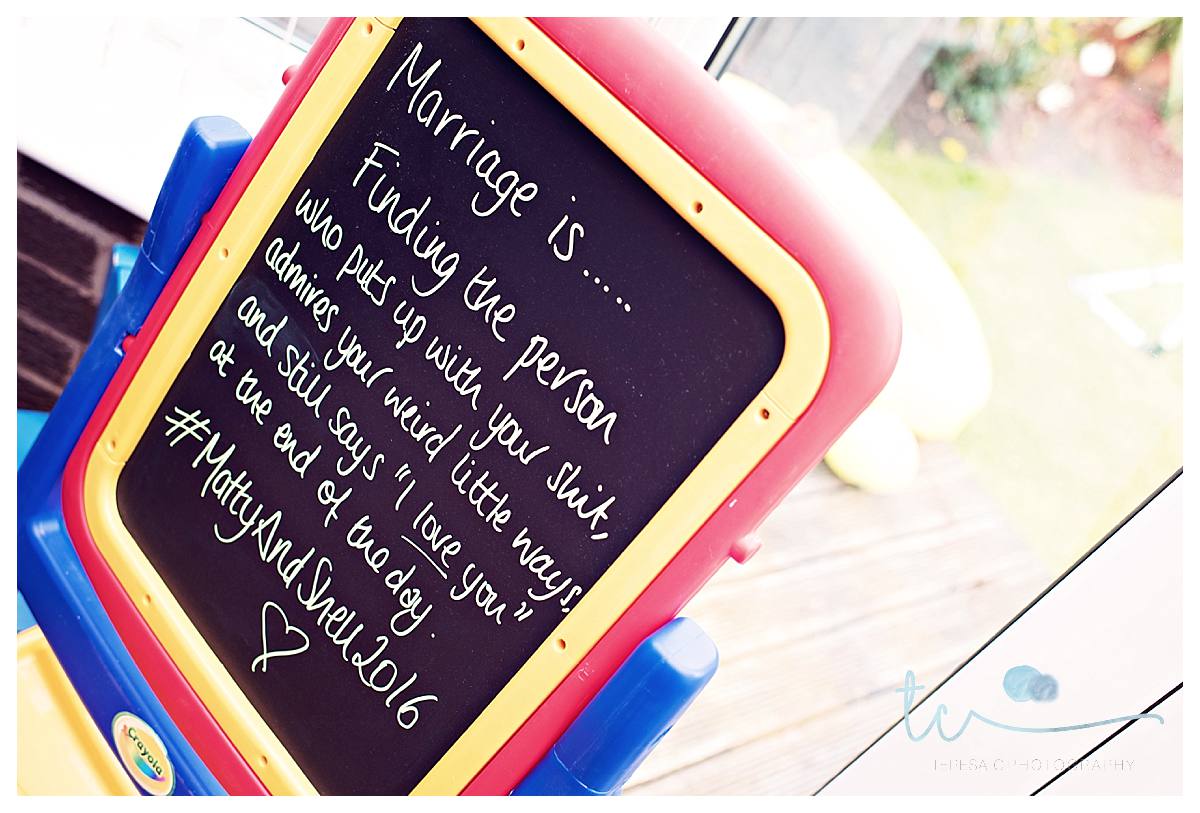 Marriage is.....
Finding the person
who puts up with your shit,
admires your weird little ways,
and still says "I love you"
at the end of the day.
#MattyAndShell2016
Crayola
tc
TERESA C PHOTOGRAPHY